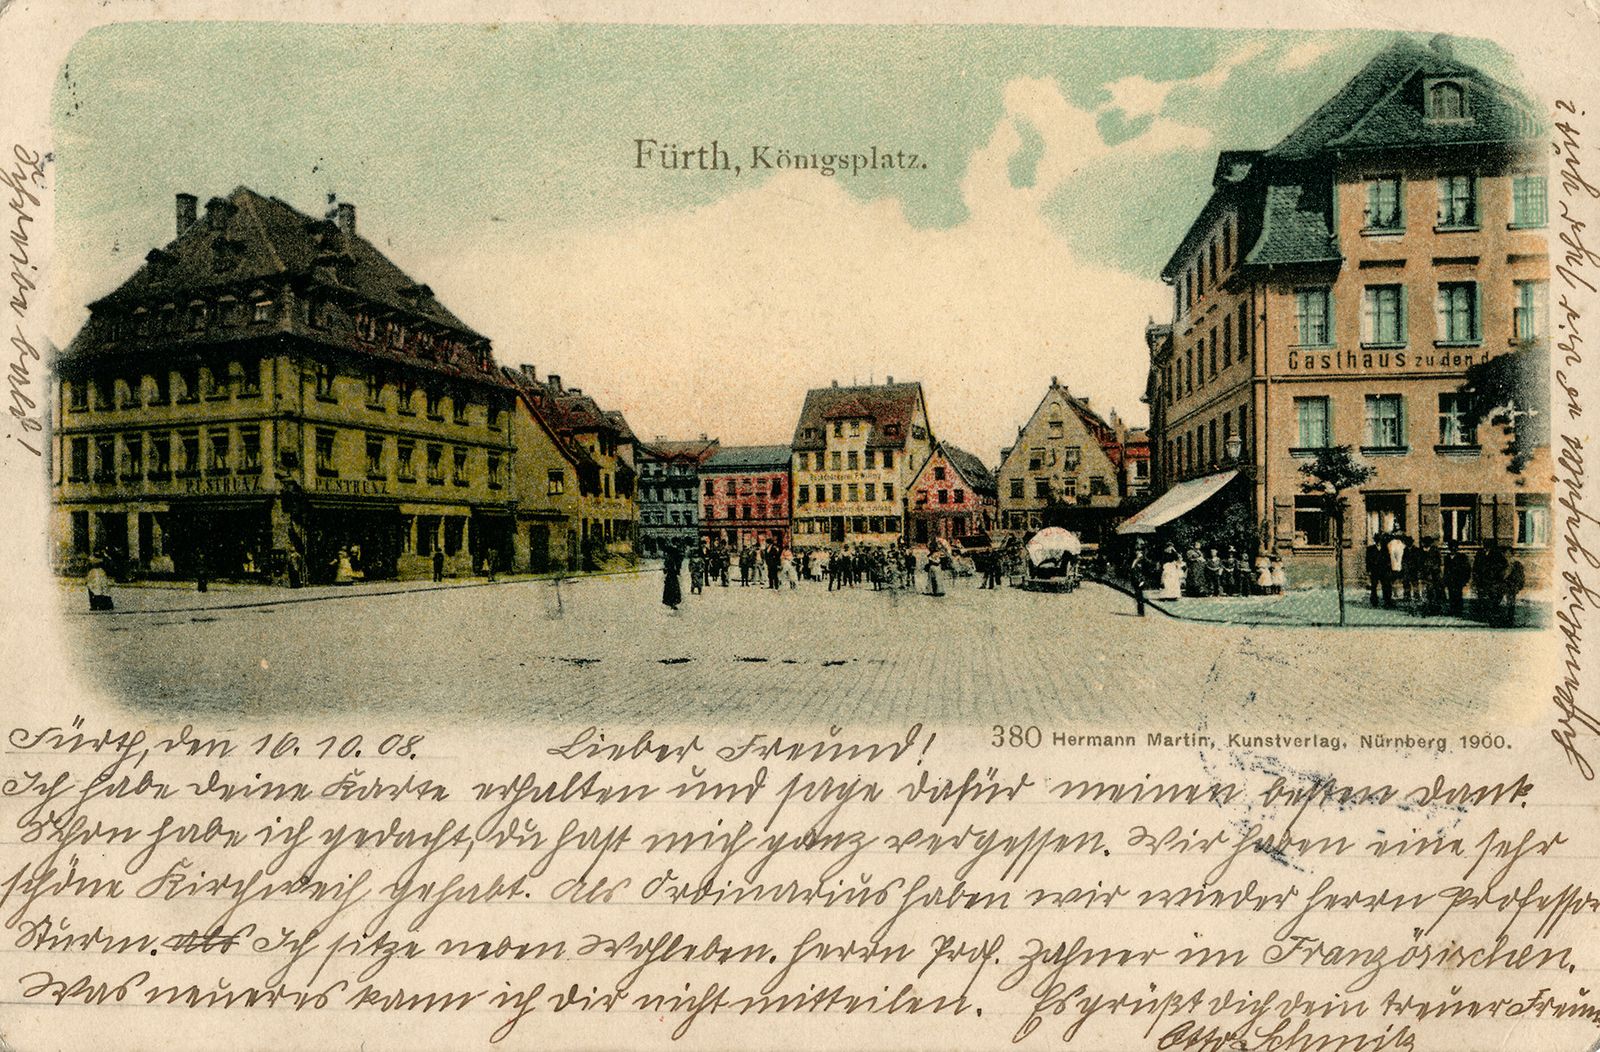 Fürth, Königsplatz.
P. ESTRUNZ P. ESTRUNZ
Gasthaus zu den d
380 Hermann Martin, Kunstverlag, Nürnberg 1900.
Fürth, den 16. 10. 08. Lieber Freund!
Ich habe deine Karte erhalten und sage dafür meinen besten Dank.
Schon habe ich gedacht, du hast mich ganz vergessen. Wir haben eine sehr
schöne Kirchweih gehabt. Als Ordinarius haben wir wieder Herrn Professor
Sturm. als Ich sitze neben Wohleben. Herrn Prof. Zahner im Französischen.
Was neueres kann ich dir nicht mitteilen. Es grüßt dich dein treuer Freund
Otto Schmitz
Schreibe bald!